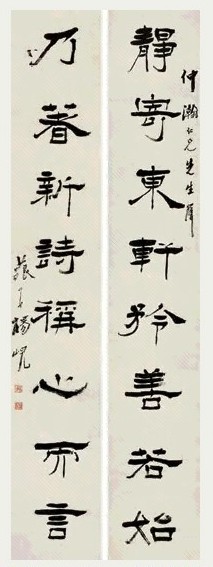 仲瀚仁兄先生屬
靜寄東軒矜善若始
乃著新詩稱心而言
楊峴